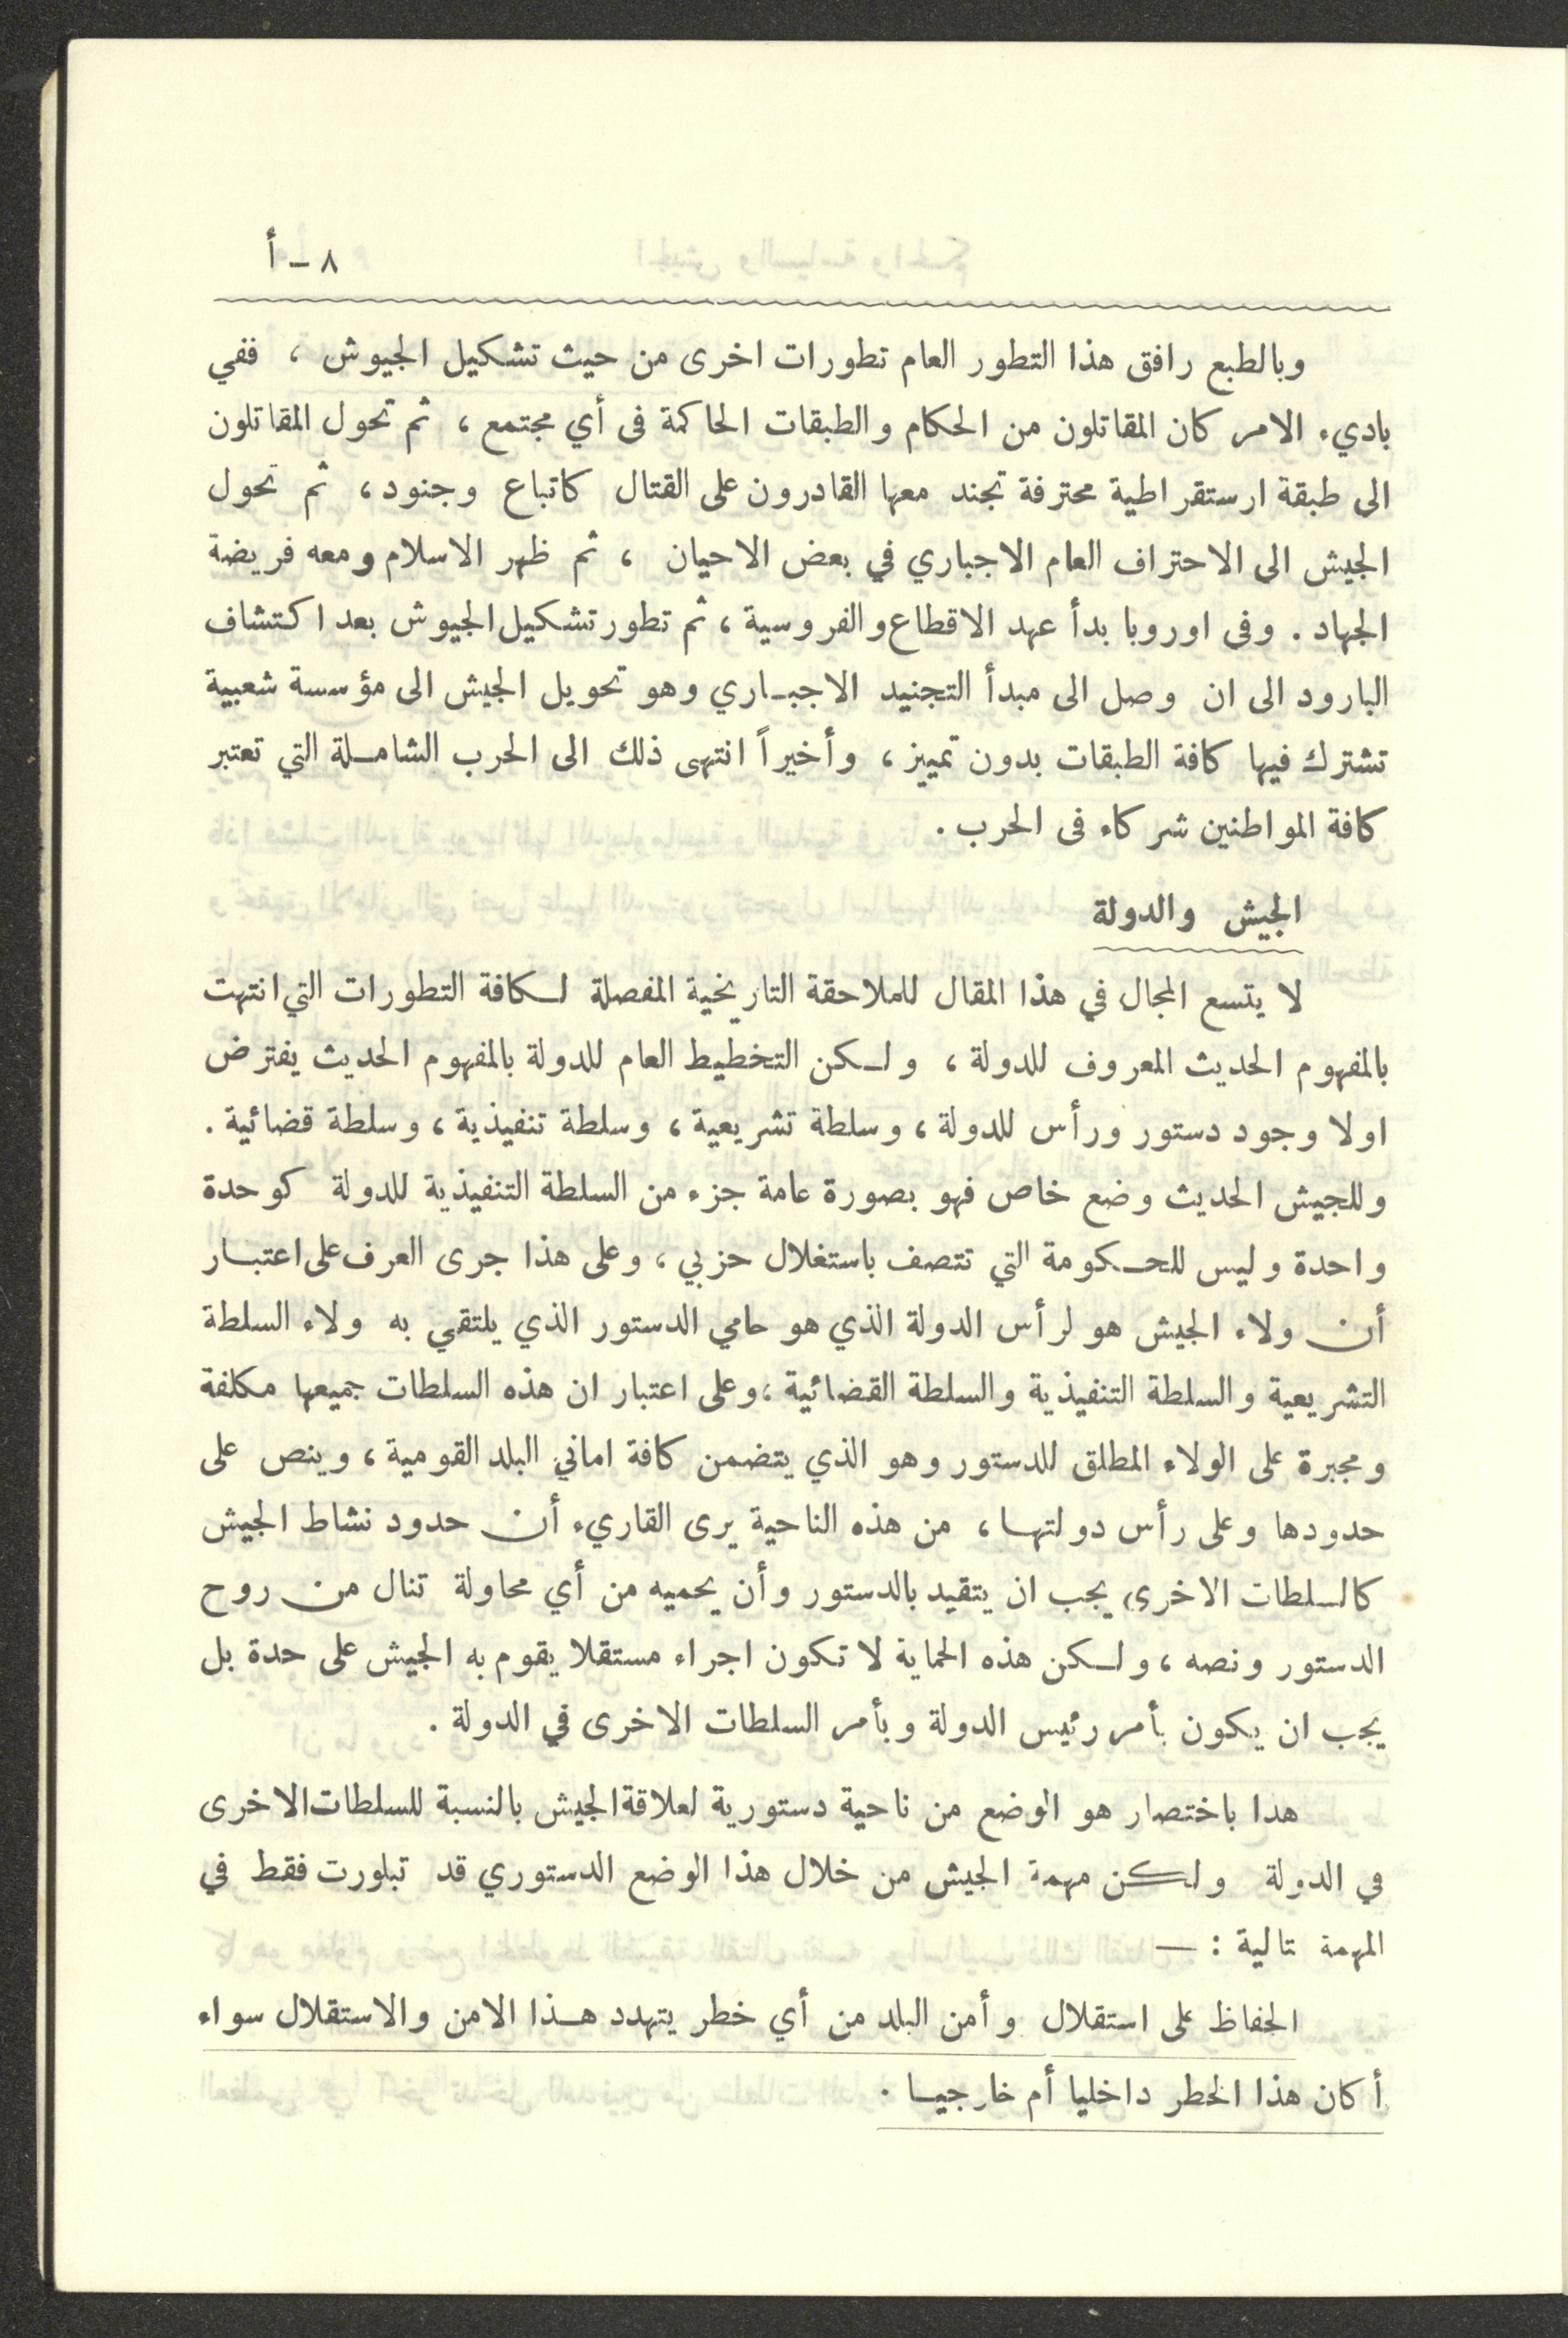 ٨ - أ
وبالطبع رافق هذا التطور العام تطورات اخرى من حيث تشكيل الجيوش ، ففي
باديء الامر كان المقاتلون من الحكام والطبقات الحاكمة فى أي مجتمع ، ثم تحول المقاتلون
الى طبقة ارستقراطية محترفة تجند معها القادرون على القتال كاتباع وجنود ، ثم تحول
الجيش الى الاحتراف العام الاجباري في بعض الاحيان ، ثم ظهر الاسلام ومعه فريضة
الجهاد . وفى اوروبا بدأ عهد الاقطاع والفروسية ، ثم تطور تشكيل الجيوش بعد اكتشاف
البارود الى ان وصل الى مبدأ التجنيد الاجباري وهو تحويل الجيش الى مؤسسة شعبية
تشترك فيها كافة الطبقات بدون تمييز ، وأخيراً انتهى ذلك الى الحرب الشاملة التي تعتبر
كافة المواطنين شركاء فى الحرب .
الجيش والدولة
لا يتسع المجال في هذا المقال للملاحقة التاريخية المفصلة لكافة التطورات التي انتهت
بالمفهوم الحديث المعروف للدولة ، ولكن التخطيط العام للدولة بالمفهوم الحديث يفترض
اولا وجود دستور ورأس للدولة ، وسلطة تشريعية ، وسلطة تنفيذية ، وسلطة قضائية .
وللجيش الحديث وضع خاص فهو بصورة عامة جزء من السلطة التنفيذية للدولة كوحدة
واحدة وليس للحكومة التي تتصف باستغلال حزبي ، وعلى هذا جرى العرف على اعتبار
أن ولاء الجيش هو لرأس الدولة الذي هو حامي الدستور الذي يلتقي به ولاء السلطة
التشريعية والسلطة التنفيذية والسلطة القضائية ، وعلى اعتبار ان هذه السلطات جميعها مكلفة
ومجبرة على الولاء المطلق للدستور وهو الذي يتضمن كافة اماني البلد القومية ، وينص على
حدودها وعلى رأس دولتها ، من هذه الناحية يرى القاريء أن حدود نشاط الجيش
كالسلطات الاخرى يجب ان يتقيد بالدستور وأن يحميه من أي محاولة تنال من روح
الدستور ونصه ، ولكن هذه الحماية لا تكون اجراء مستقلا يقوم به الجيش على حدة بل
يجب ان يكون بأمر رئيس الدولة وبأمر السلطات الاخرى في الدولة .
هدا باختصار هو الوضع من ناحية دستورية لعلاقة الجيش بالنسبة للسلطات الاخرى
في الدولة ولكن مهمة الجيش من خلال هذا الوضع الدستوري قد تبلورت فقط في
المهمة تالية : —
الحفاظ على استقلال وأمن البلد من أي خطر يتهدد هذا الامن والاستقلال سواء
أكان هذا الخطر داخليا أم خارجيا .